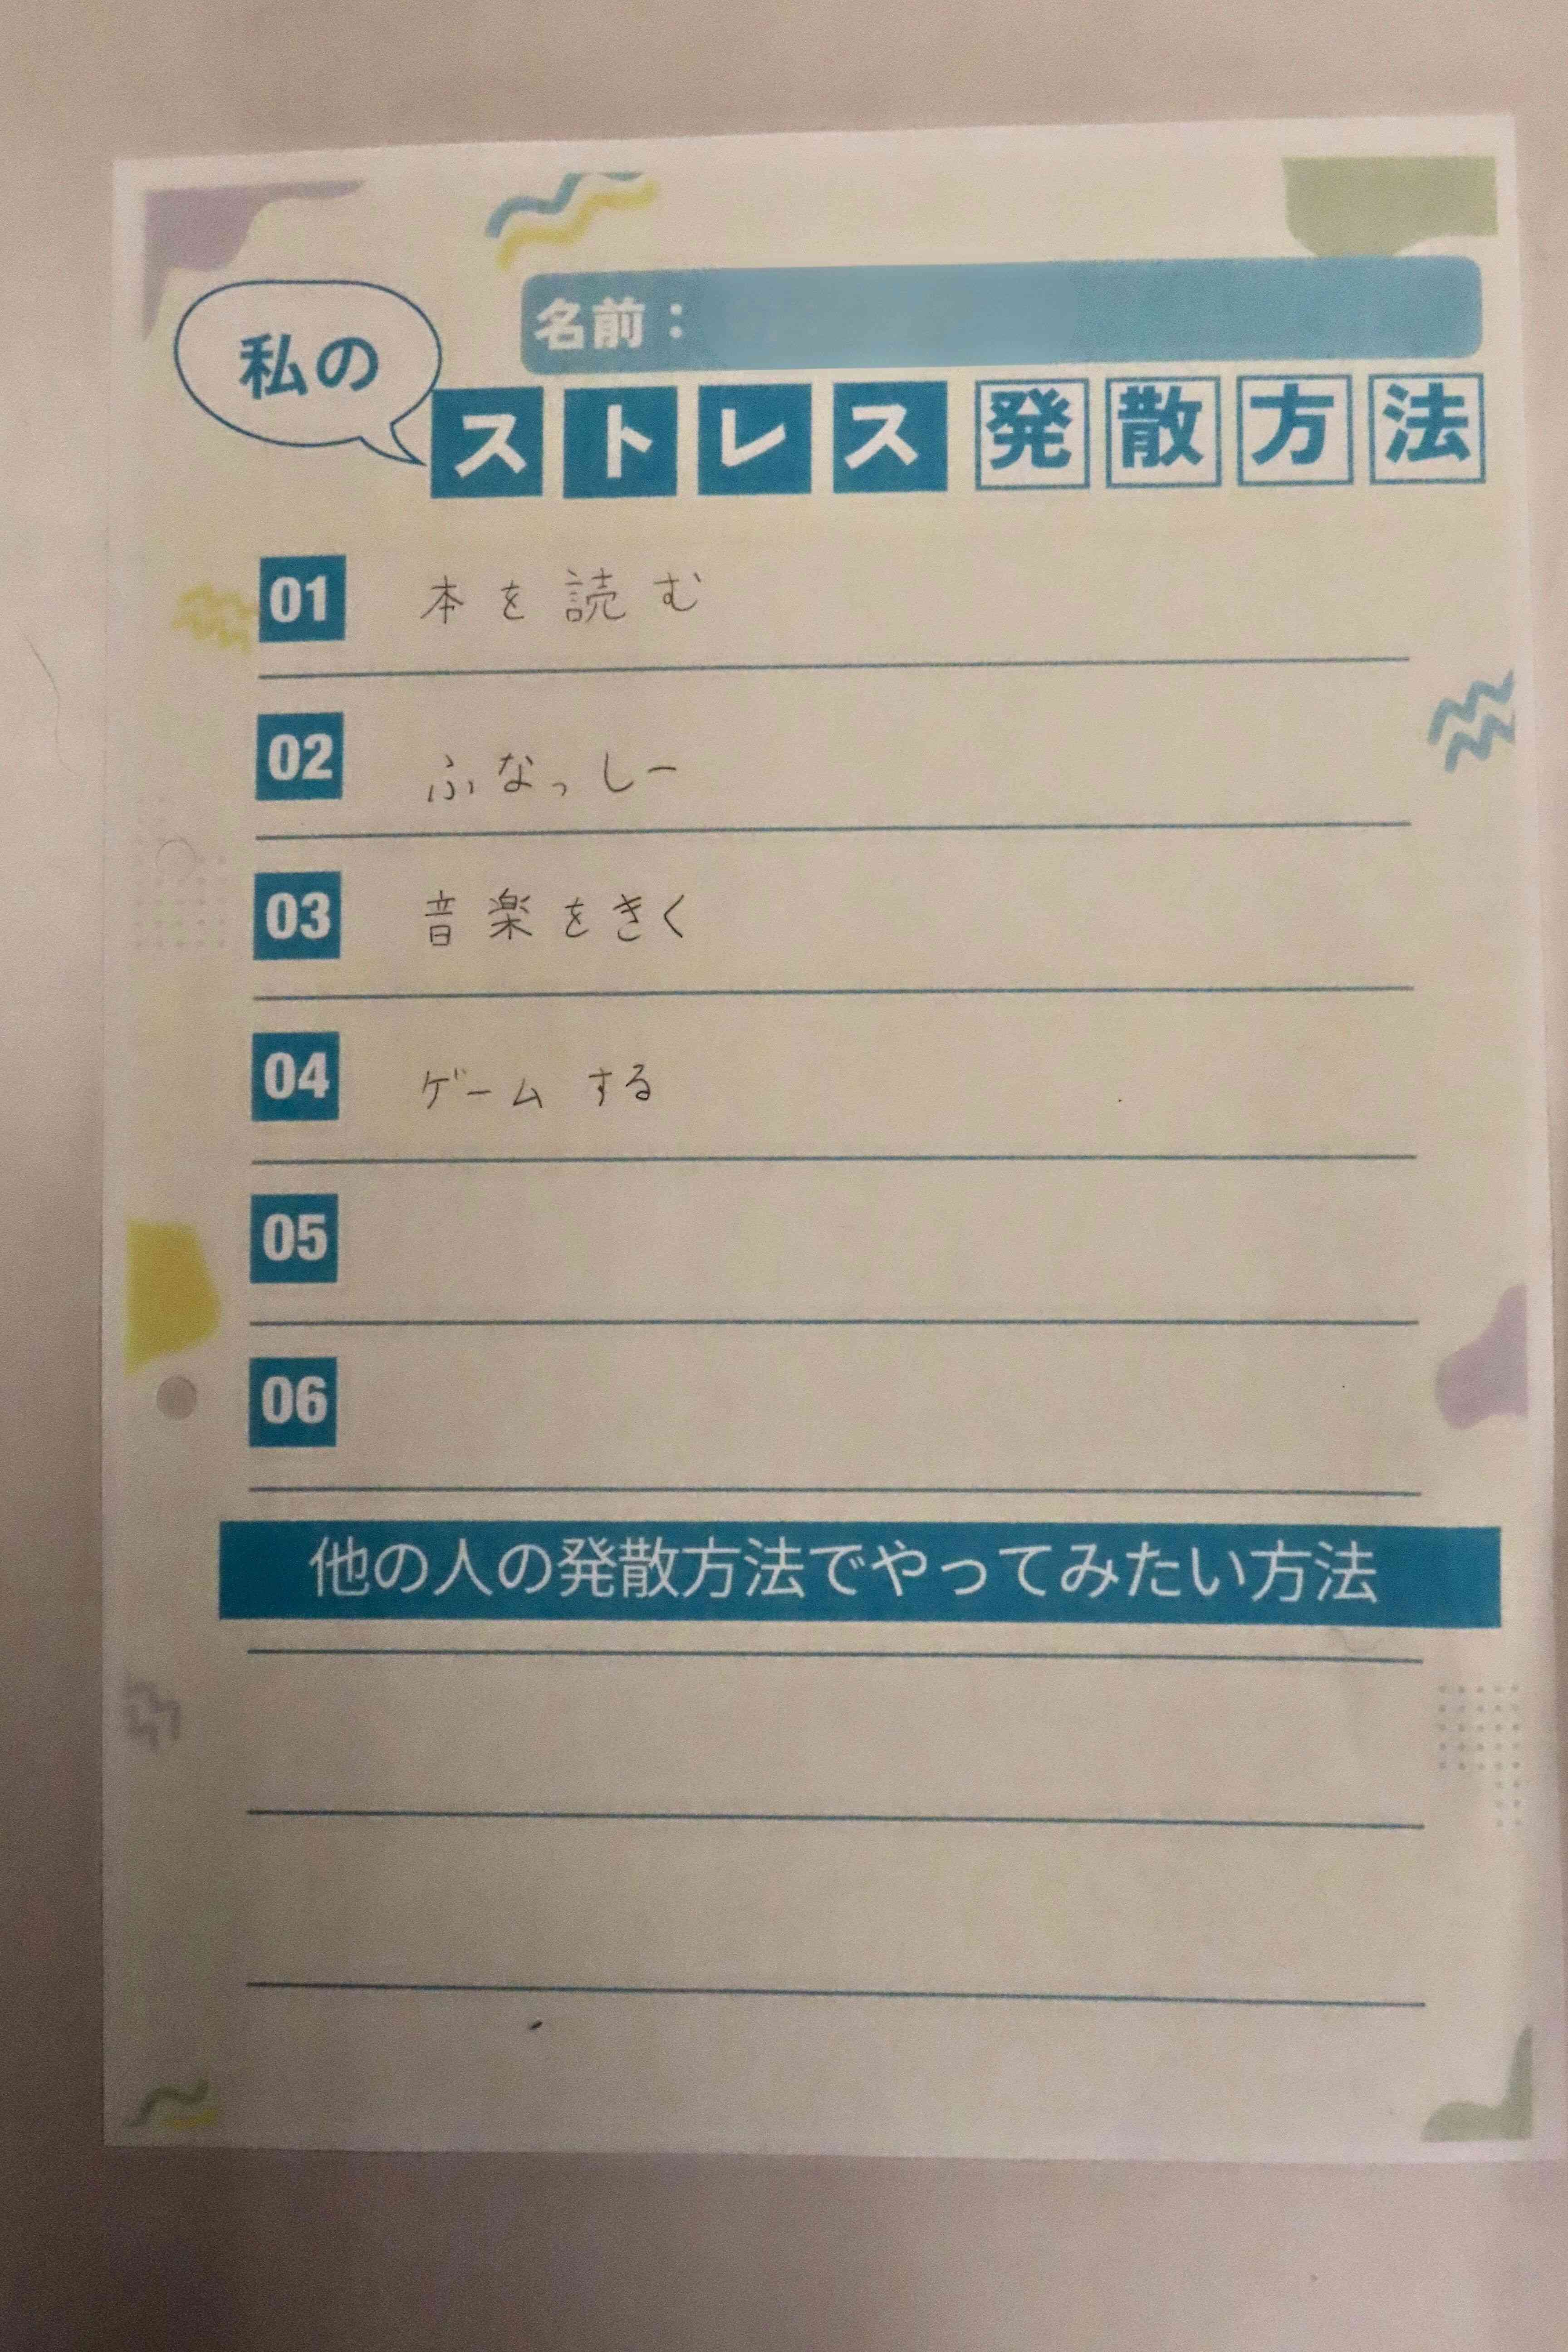 名前：
私の
ストレス発散方法
01 本を読む
02 ふなっしー
03 音楽をきく
04 ゲームする
05
06
他の人の発散方法でやってみたい方法